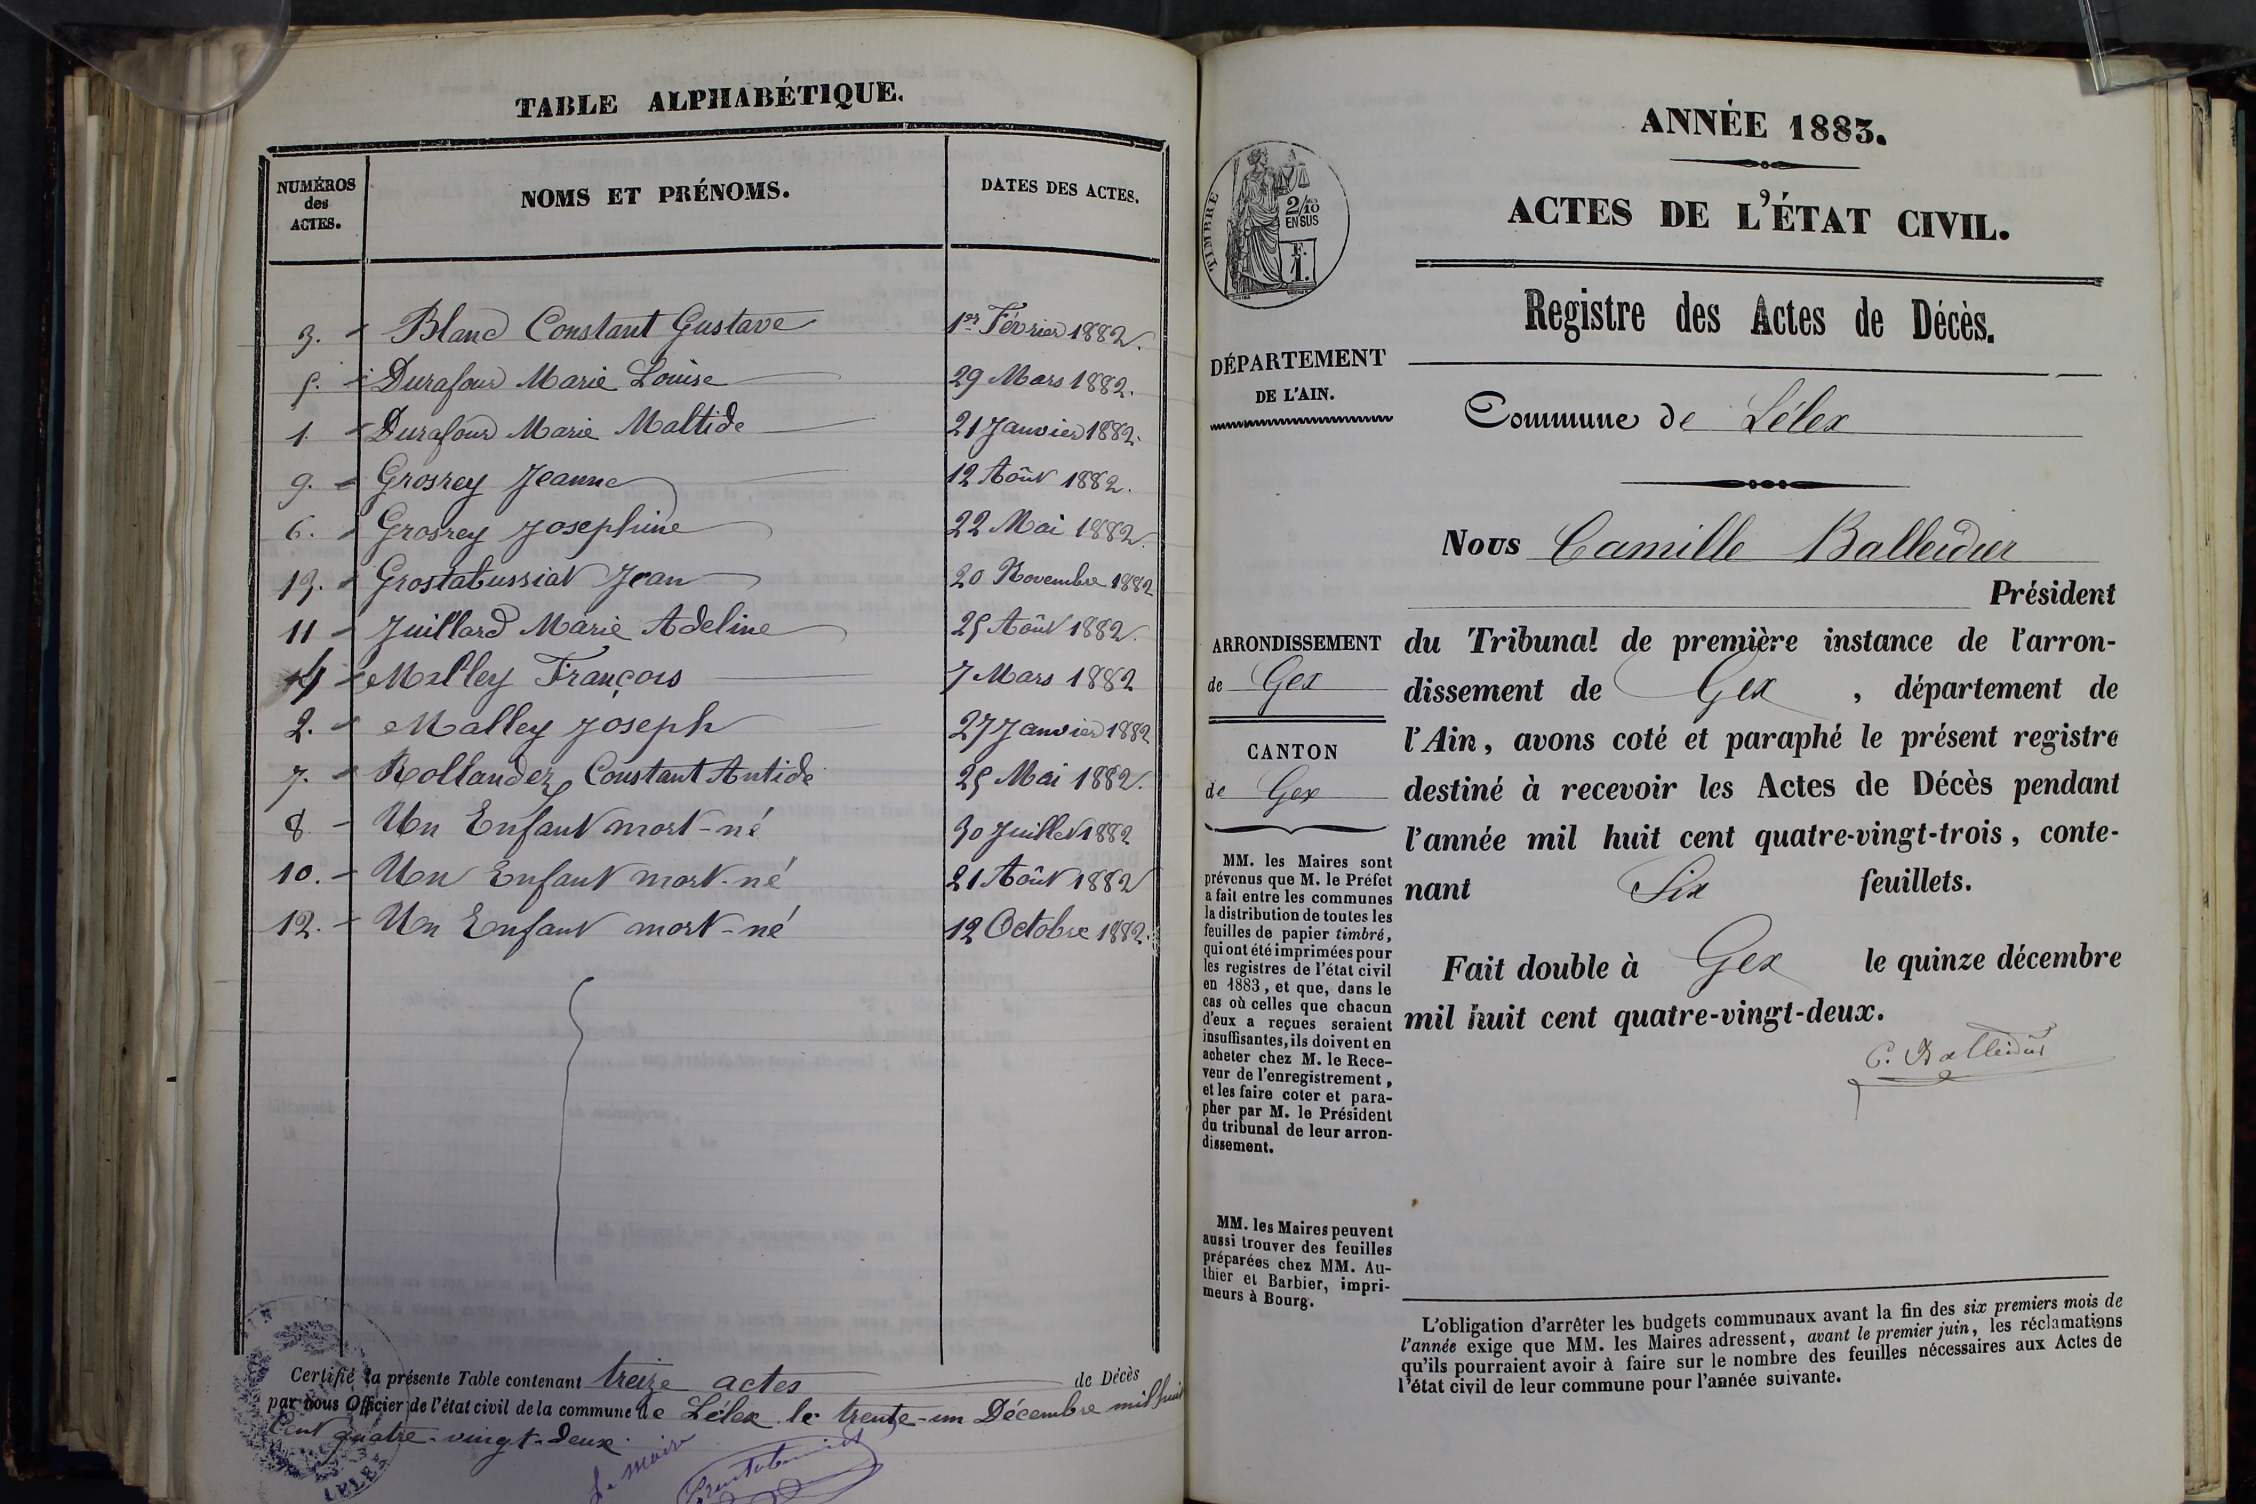 TABLE ALPHABÉTIQUE.
NUMÉROS
des
ACTES.
NOMS ET PRÉNOMS.
DATES DES ACTES.
3. Blanc Constant Gustave 1er Février 1882.
5. Durafour Marie Louise 29 Mars 1882.
1. Durafour Marie Maltide 21 Janvier 1882.
9. Grosrey Jeanne 12 Août 1882.
6. Grosrey Josephine 22 Mai 1882.
13. Grostabussiat Jean 20 Novembre 1882
11 Juillard Marie Adeline 25 Août 1882.
4 Malley François 7 Mars 1882
2. Malley Joseph 27 Janvier 1882
7. Rollandez Constant Antide 25 Mai 1882.
8 Un Enfant mort-né 30 Juillet 1882
10. Un Enfant mort-né 21 Août 1882
12. Un Enfant mort-né 12 Octobre 1882.
Certifié la présente Table contenant treize actes de Décès
par nous Officier de l'état civil de la commune de Lélex le trente-un Décembre mil huit
Cent quatre-vingt-deux.
Le Maire
LELEX
ANNÉE 1883.
ACTES DE L'ÉTAT CIVIL.
TIMBRE
2/10
EN SUS
F.
1.
Registre des Actes de Décès.
DÉPARTEMENT
DE L'AIN.
Commune de Lélex
Nous Camille Balleidier
Président
du Tribunal de première instance de l'arron-
dissement de Gex, département de
l'Ain, avons coté et paraphé le présent registre
destiné à recevoir les Actes de Décès pendant
l'année mil huit cent quatre-vingt-trois, conte-
nant Six feuillets.
Fait double à Gex le quinze décembre
mil huit cent quatre-vingt-deux.
C. Balleidier
ARRONDISSEMENT
de Gex
CANTON
de Gex
MM. les Maires sont
prévenus que M. le Préfet
a fait entre les communes
la distribution de toutes les
feuilles de papier timbré,
qui ont été imprimées pour
les registres de l'état civil
en 1883, et que, dans le
cas où celles que chacun
d'eux a reçues seraient
insuffisantes, ils doivent en
acheter chez M. le Rece-
veur de l'enregistrement,
et les faire coter et para-
pher par M. le Président
du tribunal de leur arron-
dissement.
MM. les Maires peuvent
aussi trouver des feuilles
préparées chez MM. Au-
thier et Barbier, impri-
meurs à Bourg.
L'obligation d'arrêter les budgets communaux avant la fin des six premiers mois de
l'année exige que MM. les Maires adressent, avant le premier juin, les réclamations
qu'ils pourraient avoir à faire sur le nombre des feuilles nécessaires aux Actes de
l'état civil de leur commune pour l'année suivante.